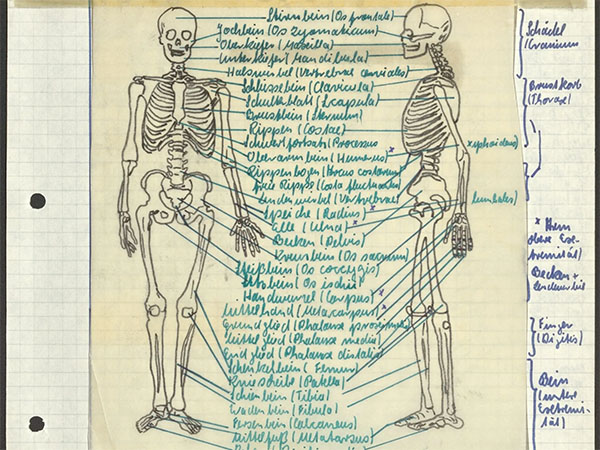 Stirnbein (Os frontale)
Jochbein (Os zygomaticum)
Oberkiefer (Maxilla)
Unterkiefer (Mandibula)
Halswirbel (Vertebrae cervicales)
Schlüsselbein (Clavicula)
Schulterblatt (Scapula)
Brustbein (Sternum)
Rippen (Costae)
Schwertfortsatz (Processus xiphoideus)
Oberarmbein (Humerus) *
Rippenbogen (Arcus costarum)
freie Rippe (Costa fluctuans)
Lendenwirbel (Vertebrae lumbales)
Speiche (Radius) *
Elle (Ulna) *
Becken (Pelvis)
Kreuzbein (Os sacrum)
Steißbein (Os coccygis)
Sitzbein (Os ischii)
Handwurzel (Carpus) *
Mittelhand (Metacarpus) *
Grundglied (Phalanx proximalis)
Mittelglied (Phalanx media)
Endglied (Phalanx distalis)
Schenkelbein (Femur)
Kniescheibe (Patella)
Schienbein (Tibia)
Wadenbein (Fibula)
Fersenbein (Calcaneus)
Mittelfuß (Metatarsus)
Schädel
(Cranium
Brustkorb
(Thorax)
* Arm
obere Extremität)
Becken +
Lendenwirbel
Finger
(Digitis)
Bein
(untere
Extremität)